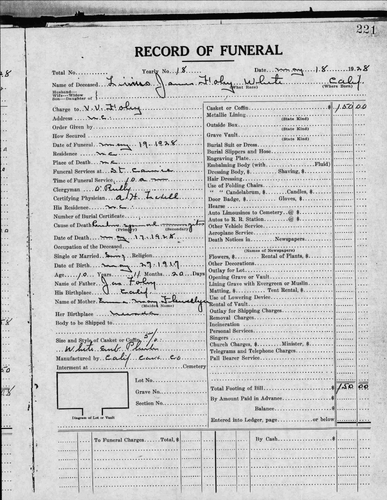 221
RECORD OF FUNERAL
Total No. Yearly No. 18 Date May 18 1928
Name of Deceased James Fohy White Calif
Husband— Wife—Widow Son—Daughter of (What Race) (Where Born)
Charge to V. V. Fohy
Address M.C.
Order Given by
How Secured
Date of Funeral May 19-1928
Residence M.C.
Place of Death M.C.
Funeral Services at St.
Time of Funeral Service 10 a m
Clergyman O'Reilly
Certifying Physician
His Residence M.C.
Number of Burial Certificate
Cause of Death
(Primary) (Secondary)
Date of Death May 17-1928
Occupation of the Deceased
Single or Married Sing Religion
Date of Birth May 27-1917
Age 10 Years 11 Months 20 Days
Name of Father Jas Fohy
His Birthplace Calif
Name of Mother Emma May
(Maiden Name)
Her Birthplace
Body to be Shipped to
Size and Style of Casket or Coffin 5/0
White
Manufactured by Calif Cas Co
Interment at Cemetery
Lot No.
Grave No.
Section No.
Diagram of Lot or Vault
Casket or Coffin $ 150 00
Metallic Lining
(State Kind)
Outside Box
(State Kind)
Grave Vault
(State Kind)
Burial Suit or Dress
Burial Slippers and Hose
Engraving Plate
Embalming Body (with Fluid)
Dressing Body, $ Shaving, $
Hair Dressing
Use of Folding Chairs
" " Candelabrum, $ Candles, $
Door Badge, $ Gloves, $
Hearse
Auto Limousines to Cemetery @ $
Autos to R. R. Station @ $
Other Vehicle Service
Aeroplane Service
Death Notices in Newspapers
(Names of Newspapers)
Flowers, $ Rental of Plants, $
Other Decorations
Outlay for Lot
Opening Grave or Vault
Lining Grave with Evergreen or Muslin
Matting, $ Tent Rental, $
Use of Lowering Device
Rental of Vault
Outlay for Shipping Charges
Removal Charges
Incineration
Personal Services
Singers
Church Charges, $ Minister, $
Telegrams and Telephone Charges
Pall Bearer Service
Total Footing of Bill $ 150 00
By Amount Paid in Advance
Balance
Entered into Ledger, page or below
To Funeral Charges Total, $
By Cash $